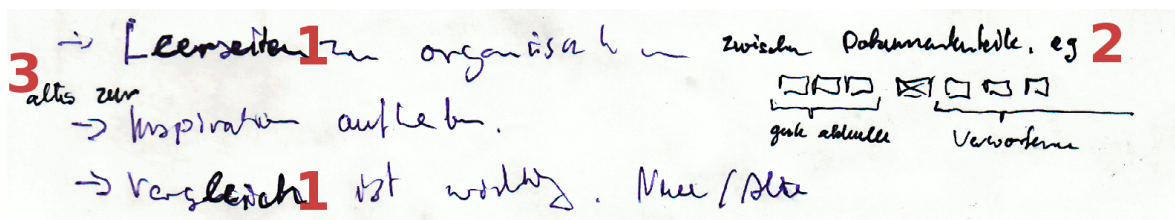 → Leerseiten 1 zum organisch zwischen Dokumententeile, eg 2
3 altes zur
→ Inspiration aufheben.
gute aktuelle Verworfene
→ Vergleich 1 ist wichtig. Neue / Alte